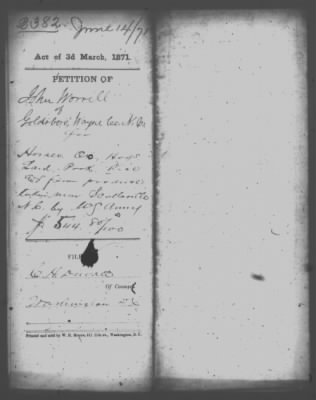 2382 June 14/71
Act of 3d March, 1871.
PETITION OF
John Worrell
of
Goldsboro, Wayne Co. N. C.
for
Horses Hogs
Lard Pork
& farm produce
taken near
N.C. by US Army
$ 544 80/100
FILED
C. H.
Of Counsel
Washington D C
Printed and sold by W. H. Moore, 511 11th st., Washington, D. C.